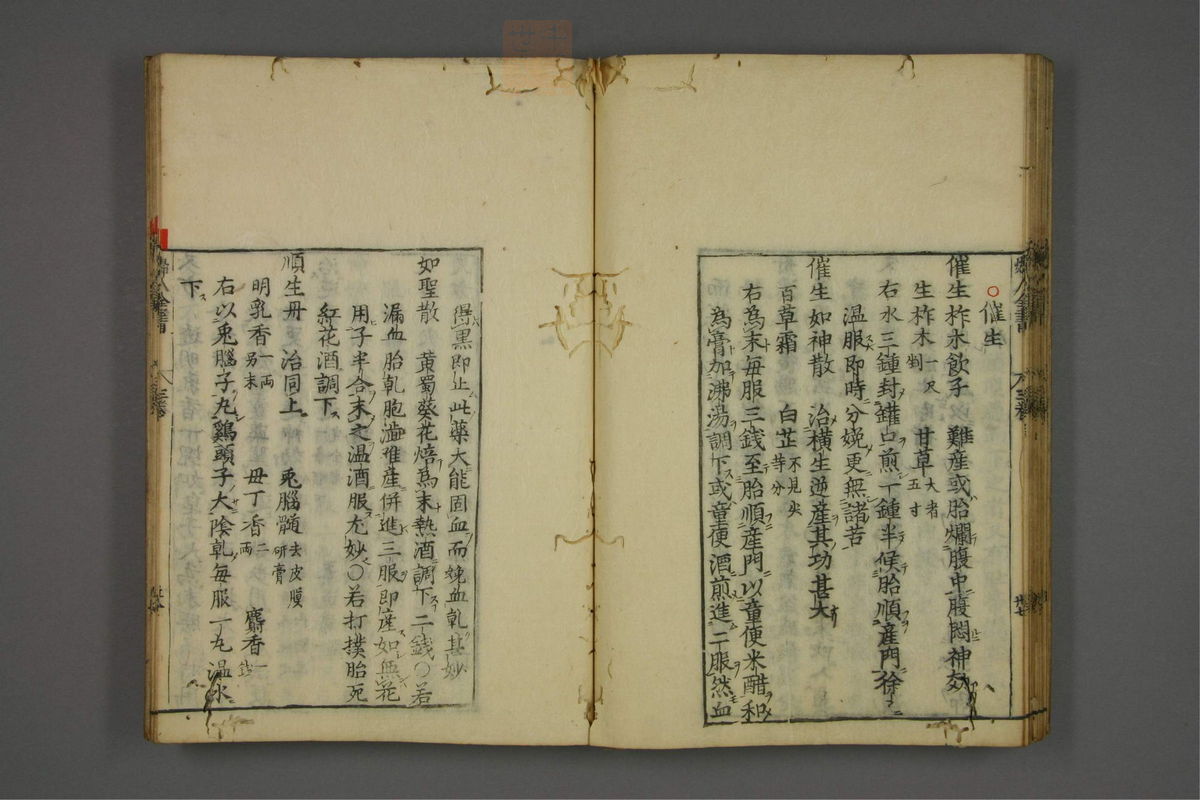 ○催生
催生柞木飲子 難産或胎爛腹中腹悶神效
生柞木一尺剉 甘草大者五寸
右水三鍾封鑵口煎一鍾半候胎順産門徐々
温服即時分娩更無諸苦
催生如神散 治横生逆産其功甚大
百草霜 白芷不見火等分
右為末毎服三錢至胎順産門以童便米醋和
為膏加沸湯調下或童便酒煎進二服然血
得黒即止此藥大能固血而娩血乾甚妙
如聖散 黄蜀葵花焙為末熱酒調下二錢○若
漏血胎乾胞澁难産併進三服即産如無花
用子半合末之温酒服尤妙○若打撲胎死
紅花酒調下
順生丹 治同上 兎腦髓去皮膜研膏
明乳香一両别末 母丁香二両 麝香一錢
右以兎腦子丸鷄頭子大陰乾毎服一丸温水
下